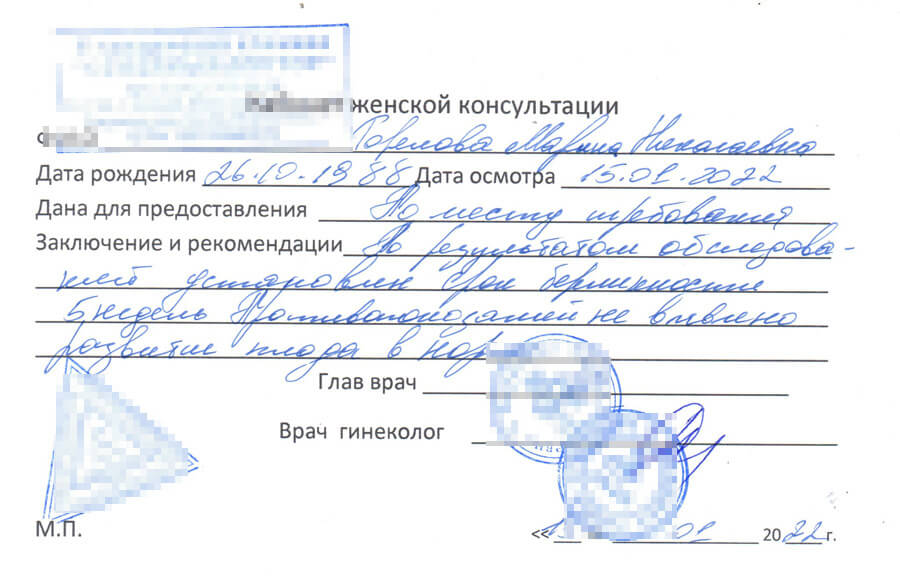 женской консультации
Горелова Марина Николаевна
Дата рождения 26.10.1988 Дата осмотра 15.01.2022
Дана для предоставления По месту требования
Заключение и рекомендации По результатом обследова-
ний установлен срок беременности
5 недель Противопоказаний не выявлено
развитие плода в нор
Глав врач
Врач гинеколог
М.П. « 01 2022 г.